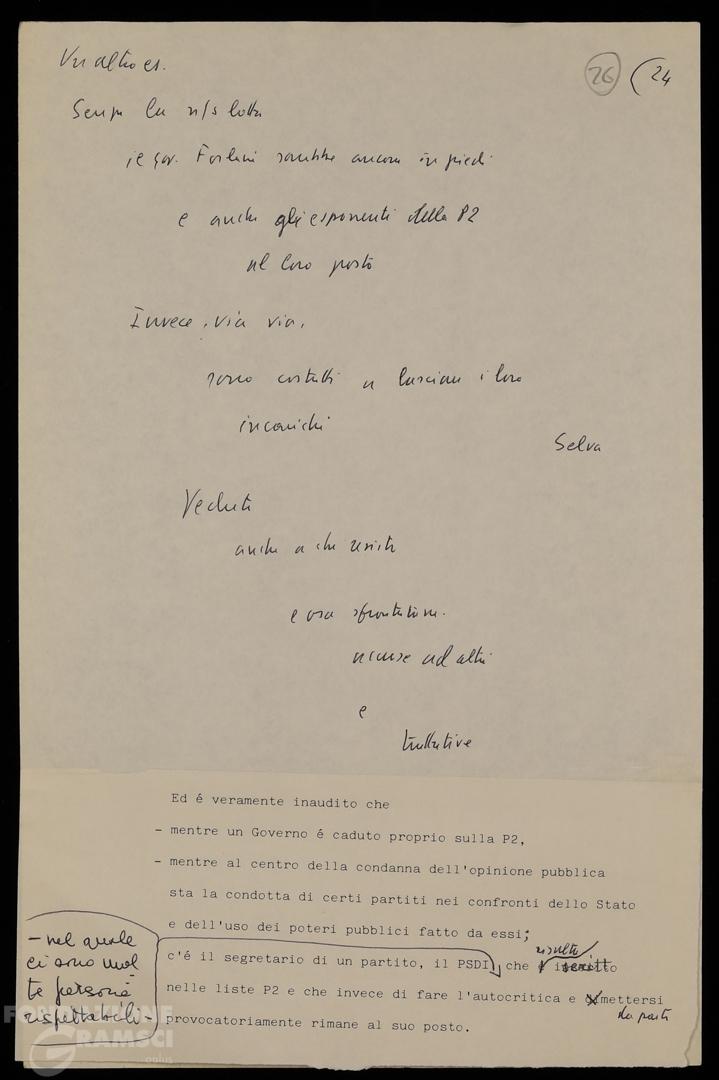 Un altro es.
26 (24
Senza la n/s lotta
il gov. Forlani sarebbe ancora in piedi
e anche gli esponenti della P2
al loro posto
Invece, via via,
sono costretti a lasciare i loro
incarichi
Selva
Vedute
anche a che
e ora
accuse ad altri
e
trattative
Ed é veramente inaudito che
- mentre un Governo é caduto proprio sulla P2,
- mentre al centro della condanna dell'opinione pubblica
sta la condotta di certi partiti nei confronti dello Stato
e dell'uso dei poteri pubblici fatto da essi;
c'é il segretario di un partito, il PSDI, che é iscritto
risulta
nelle liste P2 e che invece di fare l'autocritica e mettersi
da parte
provocatoriamente rimane al suo posto.
- nel quale
ci sono mol
te persone
rispettabili -
FONDAZIONE
GRAMSCI
onlus